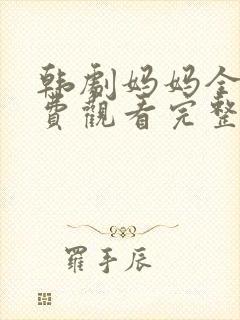 韩剧妈妈全
费观看完整
罗手辰